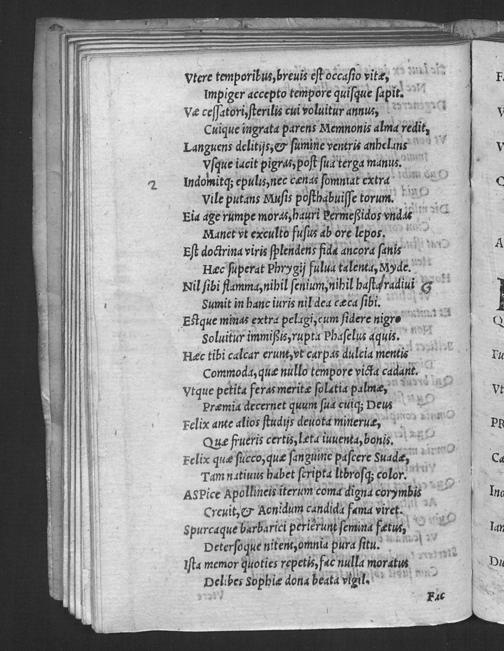 Vtere temporibus, breuis est occasio vitæ,
Impiger accepto tempore quisque sapit.
Væ cessatori, sterilis cui voluitur annus,
Cuique ingrata parens Memnonis alma redit,
Languens delitijs, & sumine ventris anhelans
Vsque iacit pigras, post sua terga manus.
Indomitq; epulis, nec cænas somniat extra
2
Vile putans Musis posthabuisse torum.
Eia age rumpe moras, hauri Permeßidos vndas
Manet vt exculto fusus ab ore lepos.
Est doctrina viris splendens fida ancora sanis
Hæc superat Phrygij fulua talenta, Myde.
Nil sibi flamma, nihil senium, nihil hasta gradiui
Sumit in hanc iuris nil dea cæca sibi.
Estque minas extra pelagi, cum sidere nigro
Soluitur immißis, rupta Phaselus aquis.
Hæc tibi calcar erunt, vt carpas dulcia mentis
Commoda, quæ nullo tempore victa cadant.
Vtque petita feras meritæ solatia palmæ,
Præmia decernet quum sua cuiq; Deus
Felix ante alios studijs deuota mineruæ,
Quæ frueris certis, læta iuuenta, bonis.
Felix quæ succo, quæ sanguine pascere Suadæ,
Tam natiuus habet scripta librosq; color.
ASPice Apollineis iterum coma digna corymbis
Creuit, & Aonidum candida fama viret.
Spurcaque barbarici perierunt semina fætus,
Detersoque nitent, omnia pura situ.
Ista memor quoties repetis, fac nulla moratus
Delibes Sophiæ dona beata vigil.
Fac